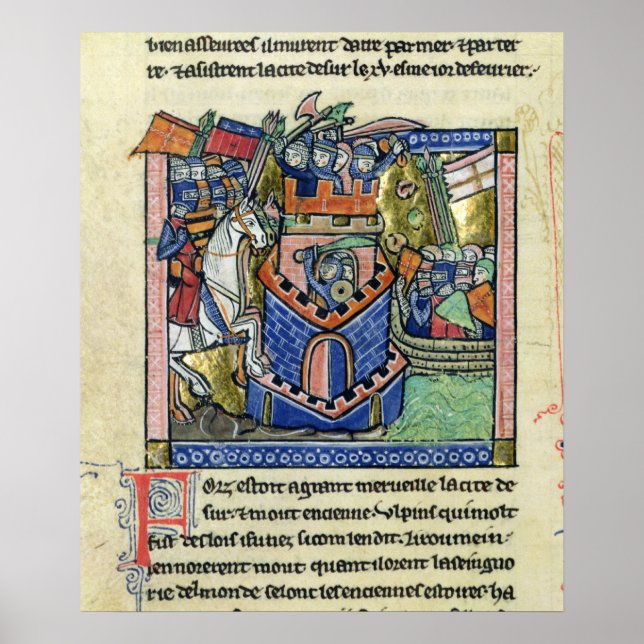 bien asseurees il murent da tre par mer ⁊ par ter
re ⁊ asistrent la cite de sur le xv. esme ior de feurier.
Forz estoit a grant merueille la cite de
sur. ⁊ mout encienne. Vlpins qui molt
fist des lois i fu nez si com len dit. Li roumein
ennorerent mout quant il orent la seingno
rie del monde selont les enciennes estoires. ha